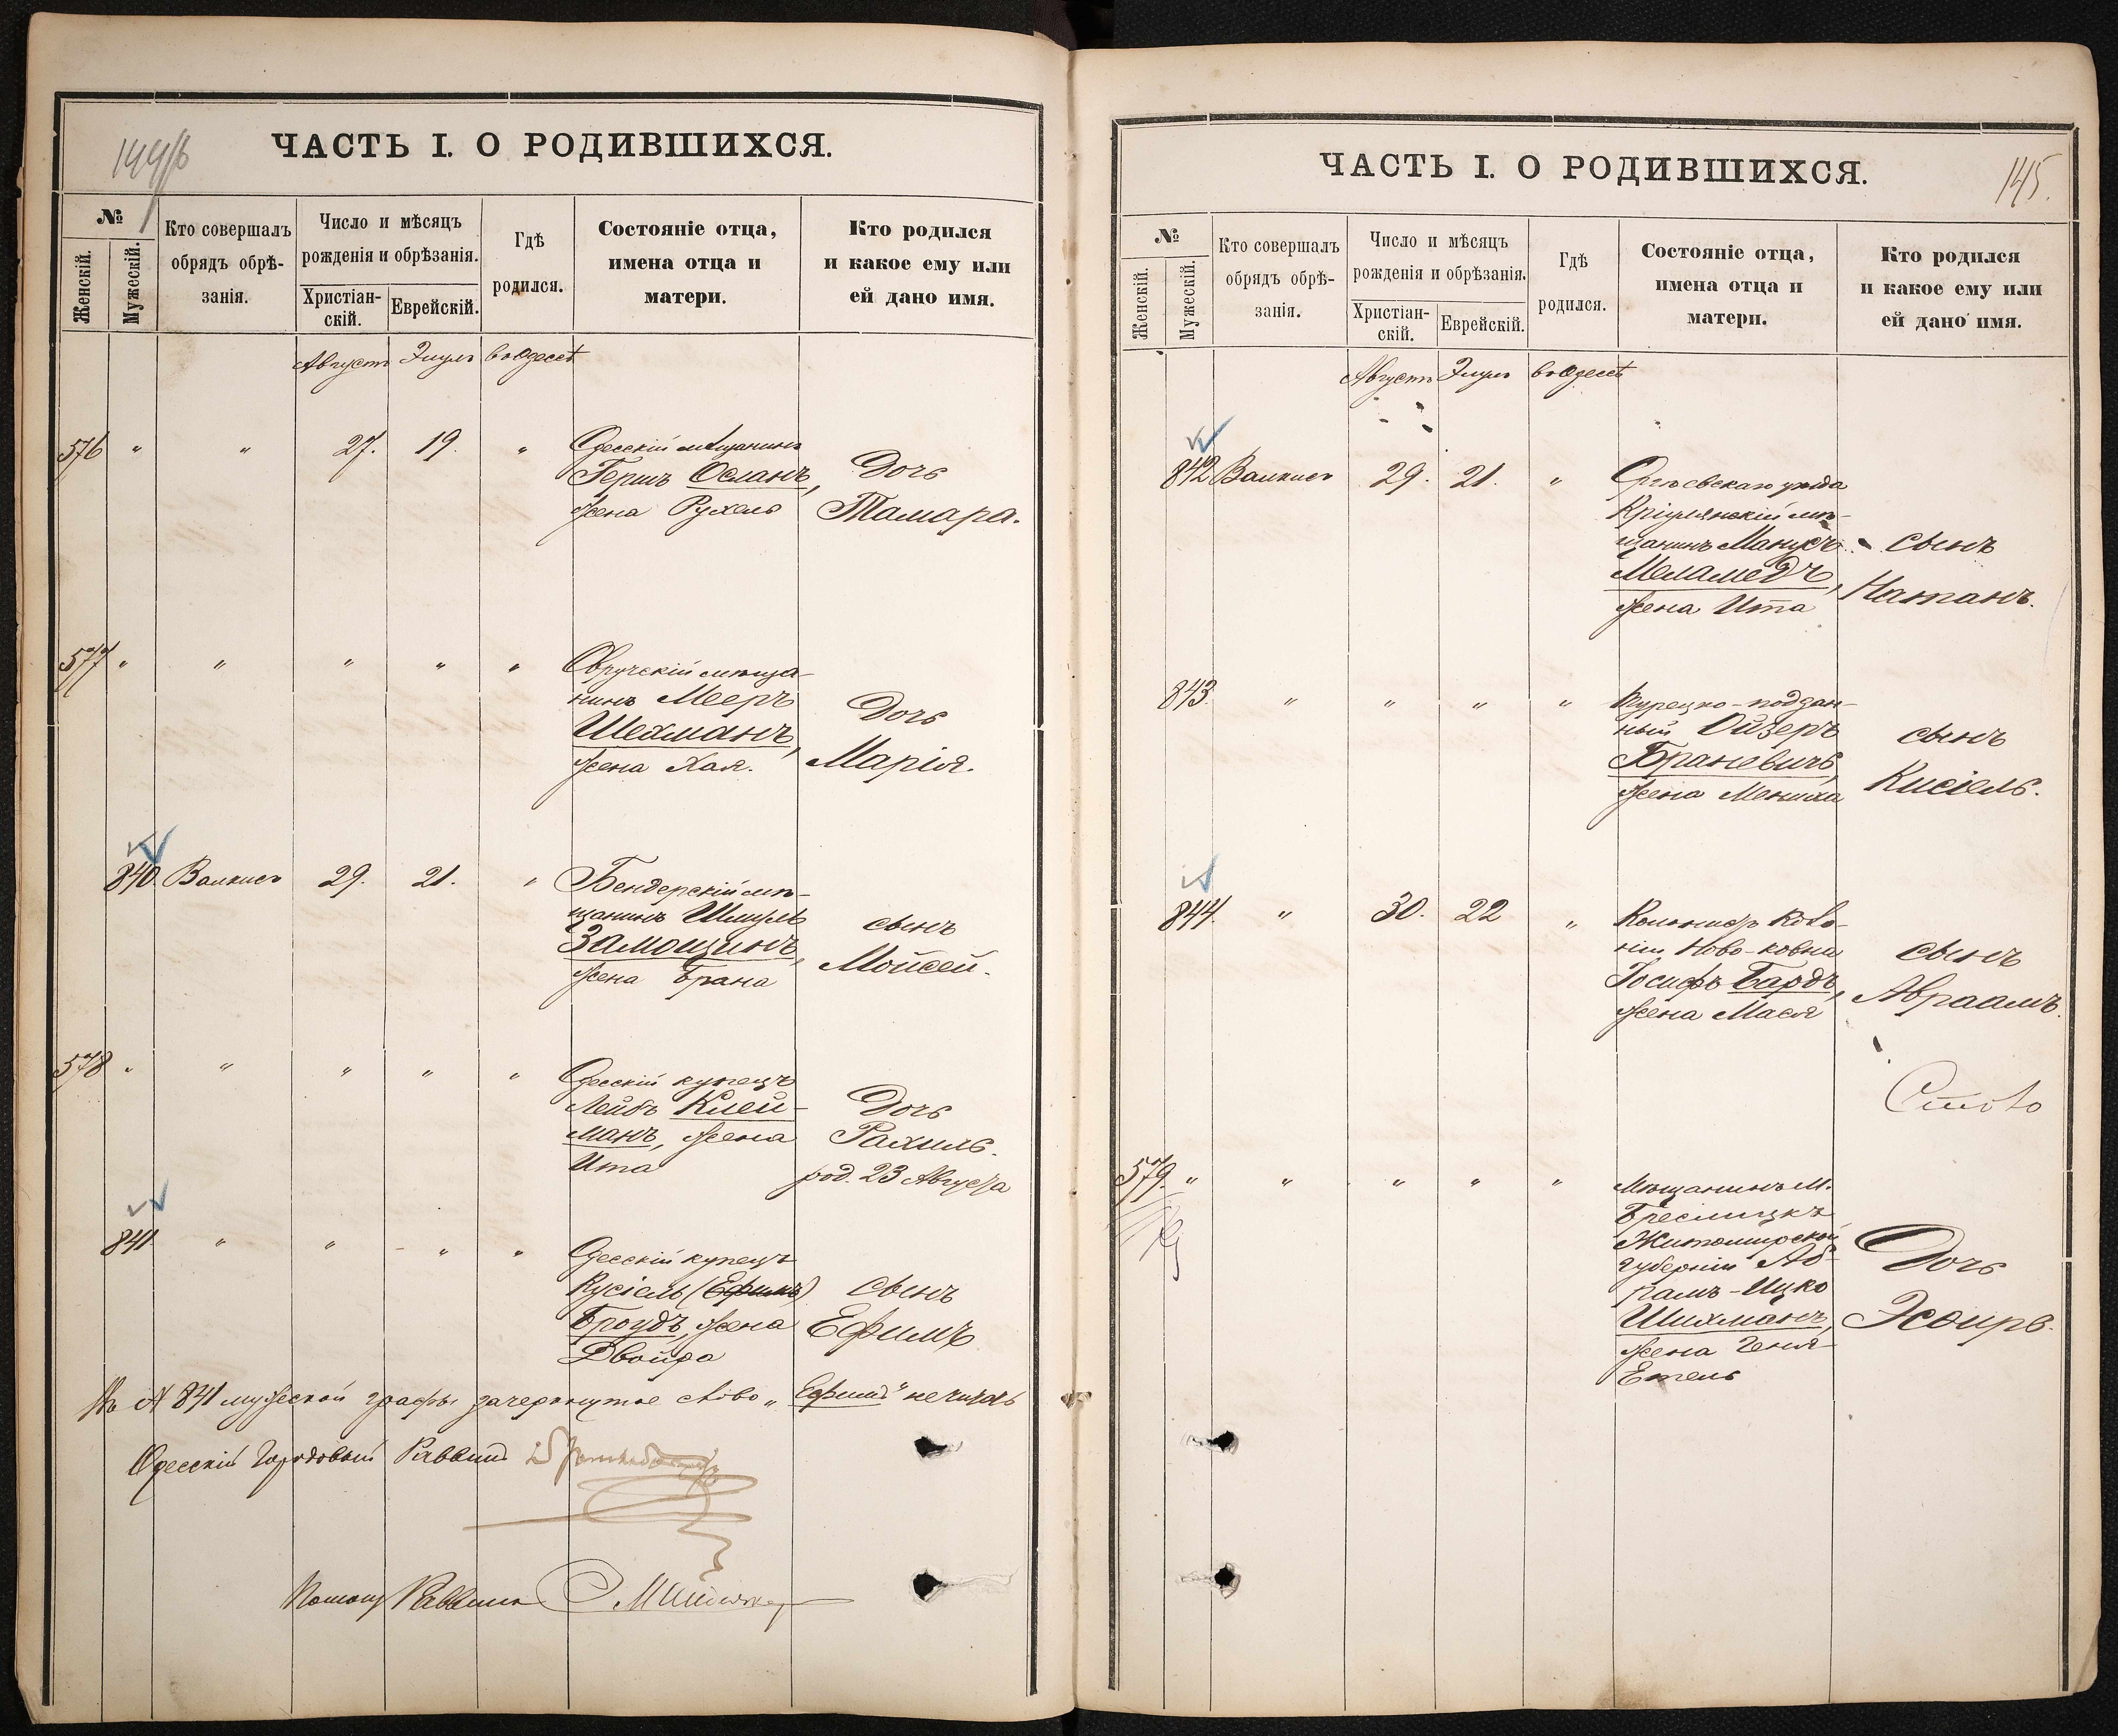 144/б
ЧАСТЬ I. О РОДИВШИХСЯ.
№
Женскій.
Мужескій.
Кто совершалъ
обрядъ обрѣ-
занія.
Число и мѣсяцъ
рожденія и обрѣзанія.
Христіан-
скій.
Еврейскій.
Гдѣ
родился.
Состояніе отца,
имена отца и
матери.
Кто родился
и какое ему или
ей дано имя.
Августъ Элулъ въ Одессѣ
576 " " 27. 19. " Одесскій мѣщанинъ
Гершъ Осланъ, Дочь
жена Рухель Тамара.
577 " " " " " Овручскій мѣща-
нинъ Мееръ Дочь
Шехманъ,
жена Хая. Марія.
840. Валкисъ 29. 21. " Бендерскій мѣ-
щанинъ Шмуль сынъ
Замощинъ,
жена Брана Мойсей.
578 " " " " " Одесскій купецъ
Лейбъ Клей- Дочь
манъ, жена Рахиль.
Ита род. 23 Августа
841 " " " " Одесскій купецъ
Кусіель (Ефимъ) сынъ
Броудъ, жена Ефимъ
Двойра
Въ № 841 мужеской графы зачеркнутое слово „Ефимъ" не читать
Одесскій Городовый Раввинъ
Помощ Раввина
145.
ЧАСТЬ I. О РОДИВШИХСЯ.
№
Женскій.
Мужескій.
Кто совершалъ
обрядъ обрѣ-
занія.
Число и мѣсяцъ
рожденія и обрѣзанія.
Христіан-
скій.
Еврейскій.
Гдѣ
родился.
Состояніе отца,
имена отца и
матери.
Кто родился
и какое ему или
ей дано имя.
Августъ Элулъ въ Одессѣ
842 Валкисъ 29. 21. " Оргѣевскаго уѣзда
Кріулянскій мѣ-
щанинъ Манусъ сынъ
Меламедъ,
жена Ита Натанъ.
843. " " " " Турецко-поддан-
ный Ойзеръ сынъ
Браневичъ,
жена Мениха Кисіель.
844. " 30. 22 " Колонистъ Коло-
ніи Ново-ковна сынъ
Іосифъ Бардъ, Авраамъ.
жена Мася
579. " " " " " Мѣщанинъ м.
Житомирской
губерніи Аб- Дочь
рамъ-Ицко
Шихманъ, Эсѳирь.
жена Геня-
Етель